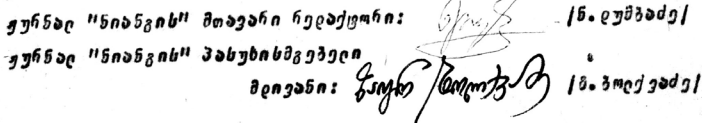 ჟურნალ "ნიანგის" მთავარი რედაქტორი: /ნ.დუმბაძე/
ჟურნალ "ნიანგის" პასუხისმგებელი
მდივანი: ზაურ ბოლქვაძე /ზ.ბოლქვაძე/